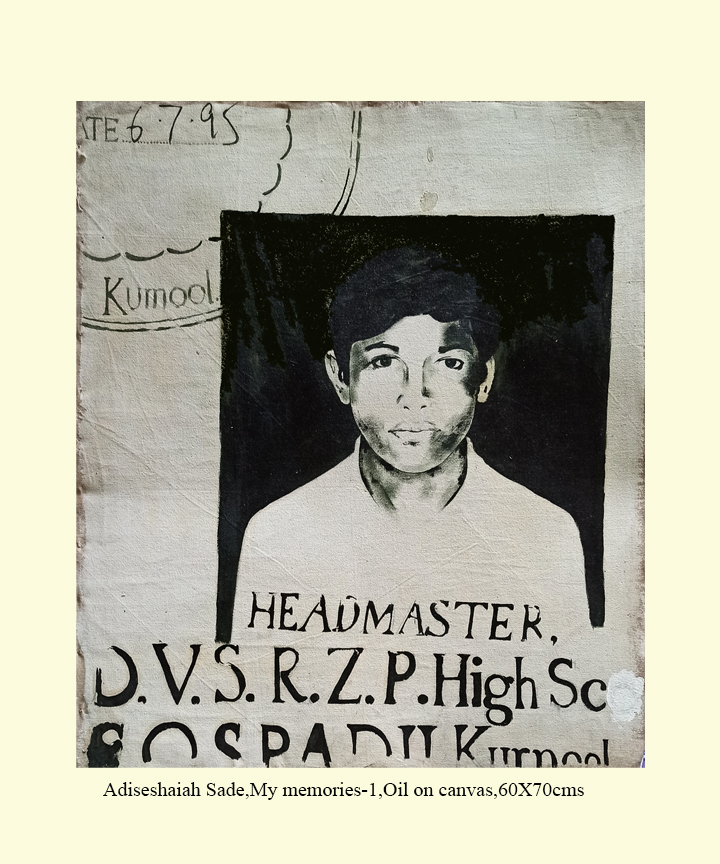 ATE 6.7.95
Kurnool.
HEADMASTER,
D.V.S.R.Z.P.High Sc
GOSPADU Kurnool
Adiseshaiah Sade,My memories-1,Oil on canvas,60X70cms